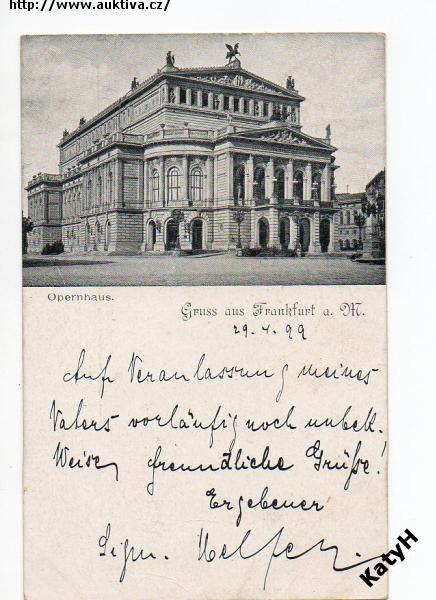 http://www.auktiva.cz/
Opernhaus.
Gruss aus Frankfurt a. M.
29. 4. 99
Auf Veranlassung meines
Vaters vorläufig noch unbek.
Weise, freundliche Grüße!
Ergebener
Sigm.
KatyH